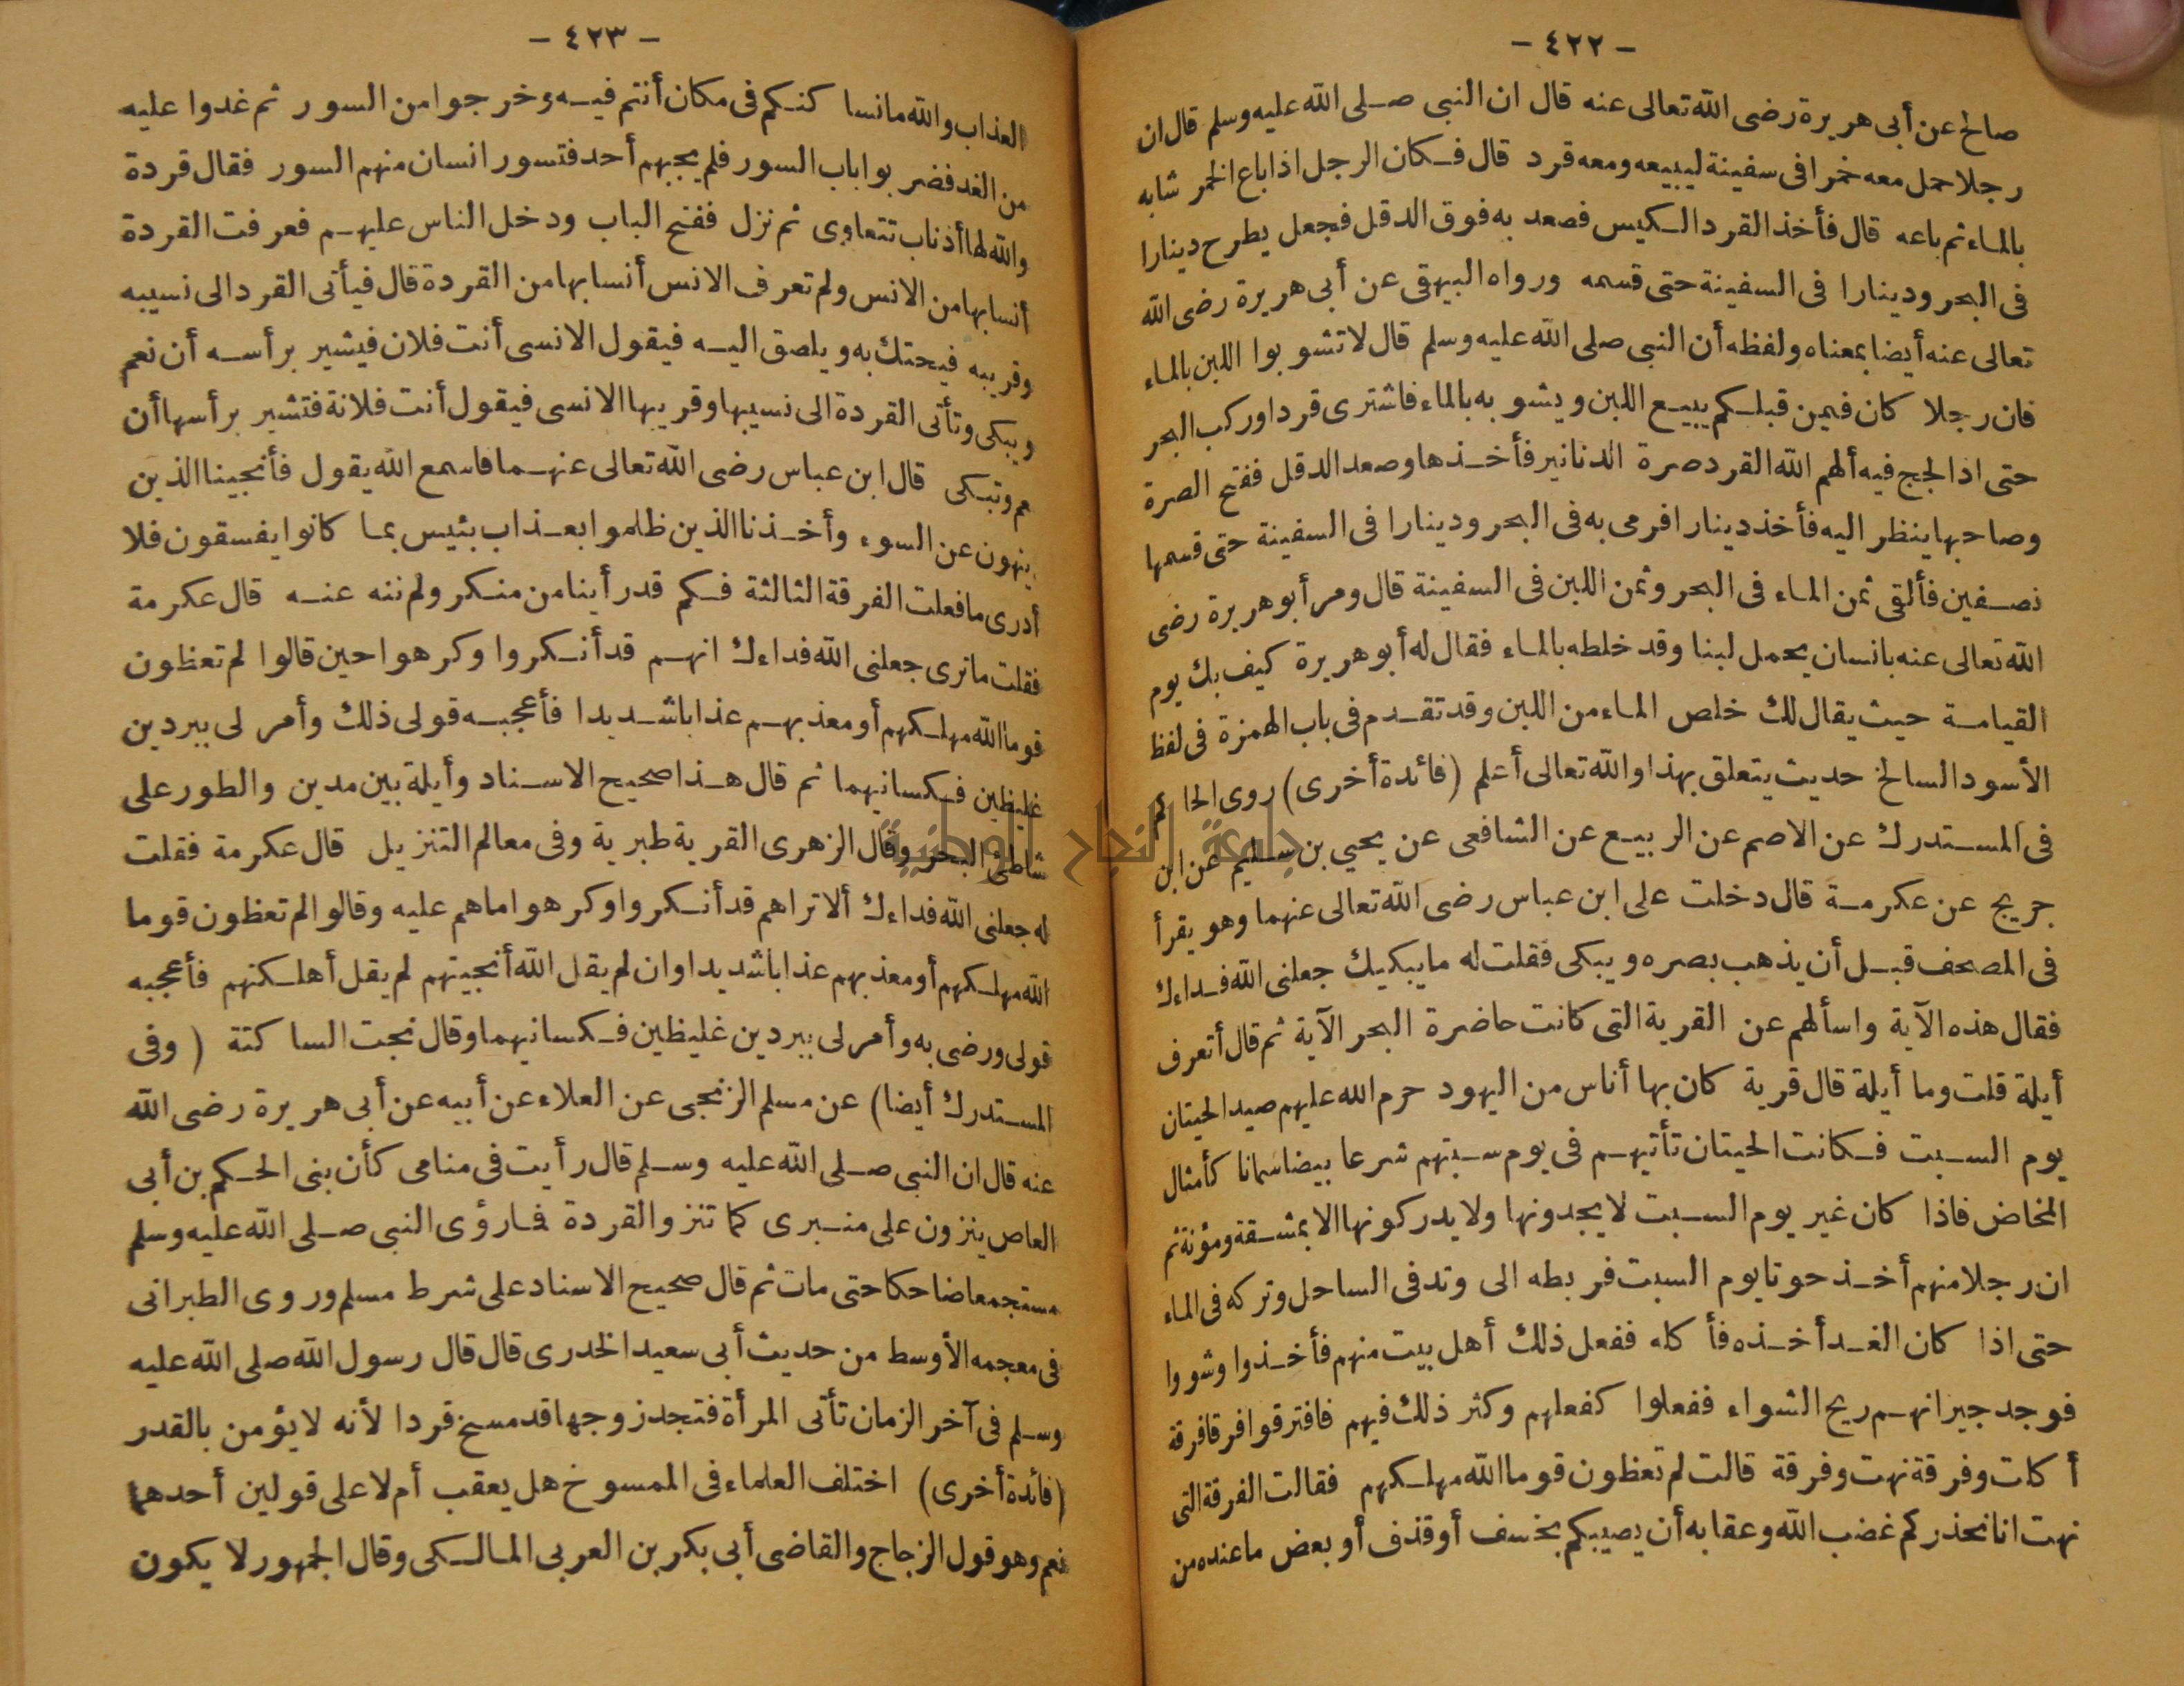 - ٤٢٢ -
صالح عن أبى هريرة رضى الله تعالى عنه قال ان النبى صلى الله عليه وسلم قال ان
رجلا حمل معه خمرا فى سفينة ليبيعه ومعه قرد قال فكان الرجل اذا باع الخمر شابه
بالماء ثم باعه قال فأخذ القرد الكيس فصعد به فوق الدقل فجعل يطرح دينارا
فى البحر ودينارا فى السفينة حتى قسمه ورواه البيهقى عن أبى هريرة رضى الله
تعالى عنه أيضا بمعناه ولفظه أن النبى صلى الله عليه وسلم قال لا تشوبوا اللبن بالماء
فان رجلا كان فيمن قبلكم يبيع اللبن ويشوبه بالماء فاشترى قردا وركب البحر
حتى اذا لجج فيه ألهم الله القرد صرة الدنانير فأخذها وصعد الدقل ففتح الصرة
وصاحبها ينظر اليه فأخذ دينارا فرمى به فى البحر ودينارا فى السفينة حتى قسمها
نصفين فألقى ثمن الماء فى البحر وثمن اللبن فى السفينة قال ومر أبو هريرة رضى
الله تعالى عنه بانسان يحمل لبنا وقد خلطه بالماء فقال له أبو هريرة كيف بك يوم
القيامة حيث يقال لك خلص الماء من اللبن وقد تقدم فى باب الهمزة فى لفظ
الأسود السالخ حديث يتعلق بهذا والله تعالى أعلم (فائدة أخرى) روى الحاكم
فى المستدرك عن الاصم عن الربيع عن الشافعى عن يحيى بن سليم عن ابن
جريج عن عكرمة قال دخلت على ابن عباس رضى الله تعالى عنهما وهو يقرأ
فى المصحف قبل أن يذهب بصره ويبكى فقلت له ما يبكيك جعلنى الله فداءك
فقال هذه الآية واسألهم عن القرية التى كانت حاضرة البحر الآية ثم قال أتعرف
أيلة قلت وما أيلة قال قرية كان بها أناس من اليهود حرم الله عليهم صيد الحيتان
يوم السبت فكانت الحيتان تأتيهم فى يوم سبتهم شرعا بيضا سمانا كأمثال
المخاض فاذا كان غير يوم السبت لا يجدونها ولا يدركونها الا بمشقة ومؤنة ثم
ان رجلا منهم أخذ حوتا يوم السبت فربطه الى وتد فى الساحل وتركه فى الماء
حتى اذا كان الغد أخذه فأكله ففعل ذلك أهل بيت منهم فأخذوا وشووا
فوجد جيرانهم ريح الشواء ففعلوا كفعلهم وكثر ذلك فيهم فافترقوا فرقا فرقة
أكلت وفرقة نهت وفرقة قالت لم تعظون قوما الله مهلكهم فقالت الفرقة التى
نهت انا نحذركم غضب الله وعقابه أن يصيبكم بخسف أو قذف أو بعض ما عنده من
- ٤٢٣ -
العذاب والله ما نساكنكم فى مكان أنتم فيه وخرجوا من السور ثم غدوا عليه
من الغد فضربوا باب السور فلم يجبهم أحد فتسور انسان منهم السور فقال قردة
والله لها أذناب تتعاوى ثم نزل ففتح الباب ودخل الناس عليهم فعرفت القردة
أنسابها من الانس ولم تعرف الانس أنسابها من القردة قال فيأتى القرد الى نسيبه
وقريبه فيحتك به ويلصق اليه فيقول الانسى أنت فلان فيشير برأسه أن نعم
ويبكى وتأتى القردة الى نسيبها وقريبها الانسى فيقول أنت فلانة فتشير برأسها أن
نعم وتبكى قال ابن عباس رضى الله تعالى عنهما فاسمع الله يقول فأنجينا الذين
ينهون عن السوء وأخذنا الذين ظلموا بعذاب بئيس بما كانوا يفسقون فلا
أدرى ما فعلت الفرقة الثالثة فكم قد رأينا من منكر ولم ننه عنه قال عكرمة
فقلت ما ترى جعلنى الله فداءك انهم قد أنكروا وكرهوا حين قالوا لم تعظون
قوما الله مهلكهم أو معذبهم عذابا شديدا فأعجبه قولى ذلك وأمر لى ببردين
غليظين فكسانيهما ثم قال هذا صحيح الاسناد وأيلة بين مدين والطور على
شاطئ البحر وقال الزهرى القرية طبرية وفى معالم التنزيل قال عكرمة فقلت
له جعلنى الله فداءك ألا تراهم قد أنكروا وكرهوا ما هم عليه وقالوا لم تعظون قوما
الله مهلكهم أو معذبهم عذابا شديدا وان لم يقل الله أنجيتهم لم يقل أهلكتهم فأعجبه
قولى ورضى به وأمر لى ببردين غليظين فكسانيهما وقال نجت الساكتة (وفى
المستدرك أيضا) عن مسلم الزنجى عن العلاء عن أبيه عن أبى هريرة رضى الله
عنه قال ان النبى صلى الله عليه وسلم قال رأيت فى منامى كأن بنى الحكم بن أبى
العاص ينزون على منبرى كما تنزو القردة فما رؤى النبى صلى الله عليه وسلم
مستجمعا ضاحكا حتى مات ثم قال صحيح الاسناد على شرط مسلم وروى الطبرانى
فى معجمه الأوسط من حديث أبى سعيد الخدرى قال قال رسول الله صلى الله عليه
وسلم فى آخر الزمان تأتى المرأة فتجد زوجها قد مسخ قردا لأنه لا يؤمن بالقدر
(فائدة أخرى) اختلف العلماء فى الممسوخ هل يعقب أم لا على قولين أحدهما
نعم وهو قول الزجاج والقاضى أبى بكر بن العربى المالكى وقال الجمهور لا يكون
جامعة النجاح الوطنية